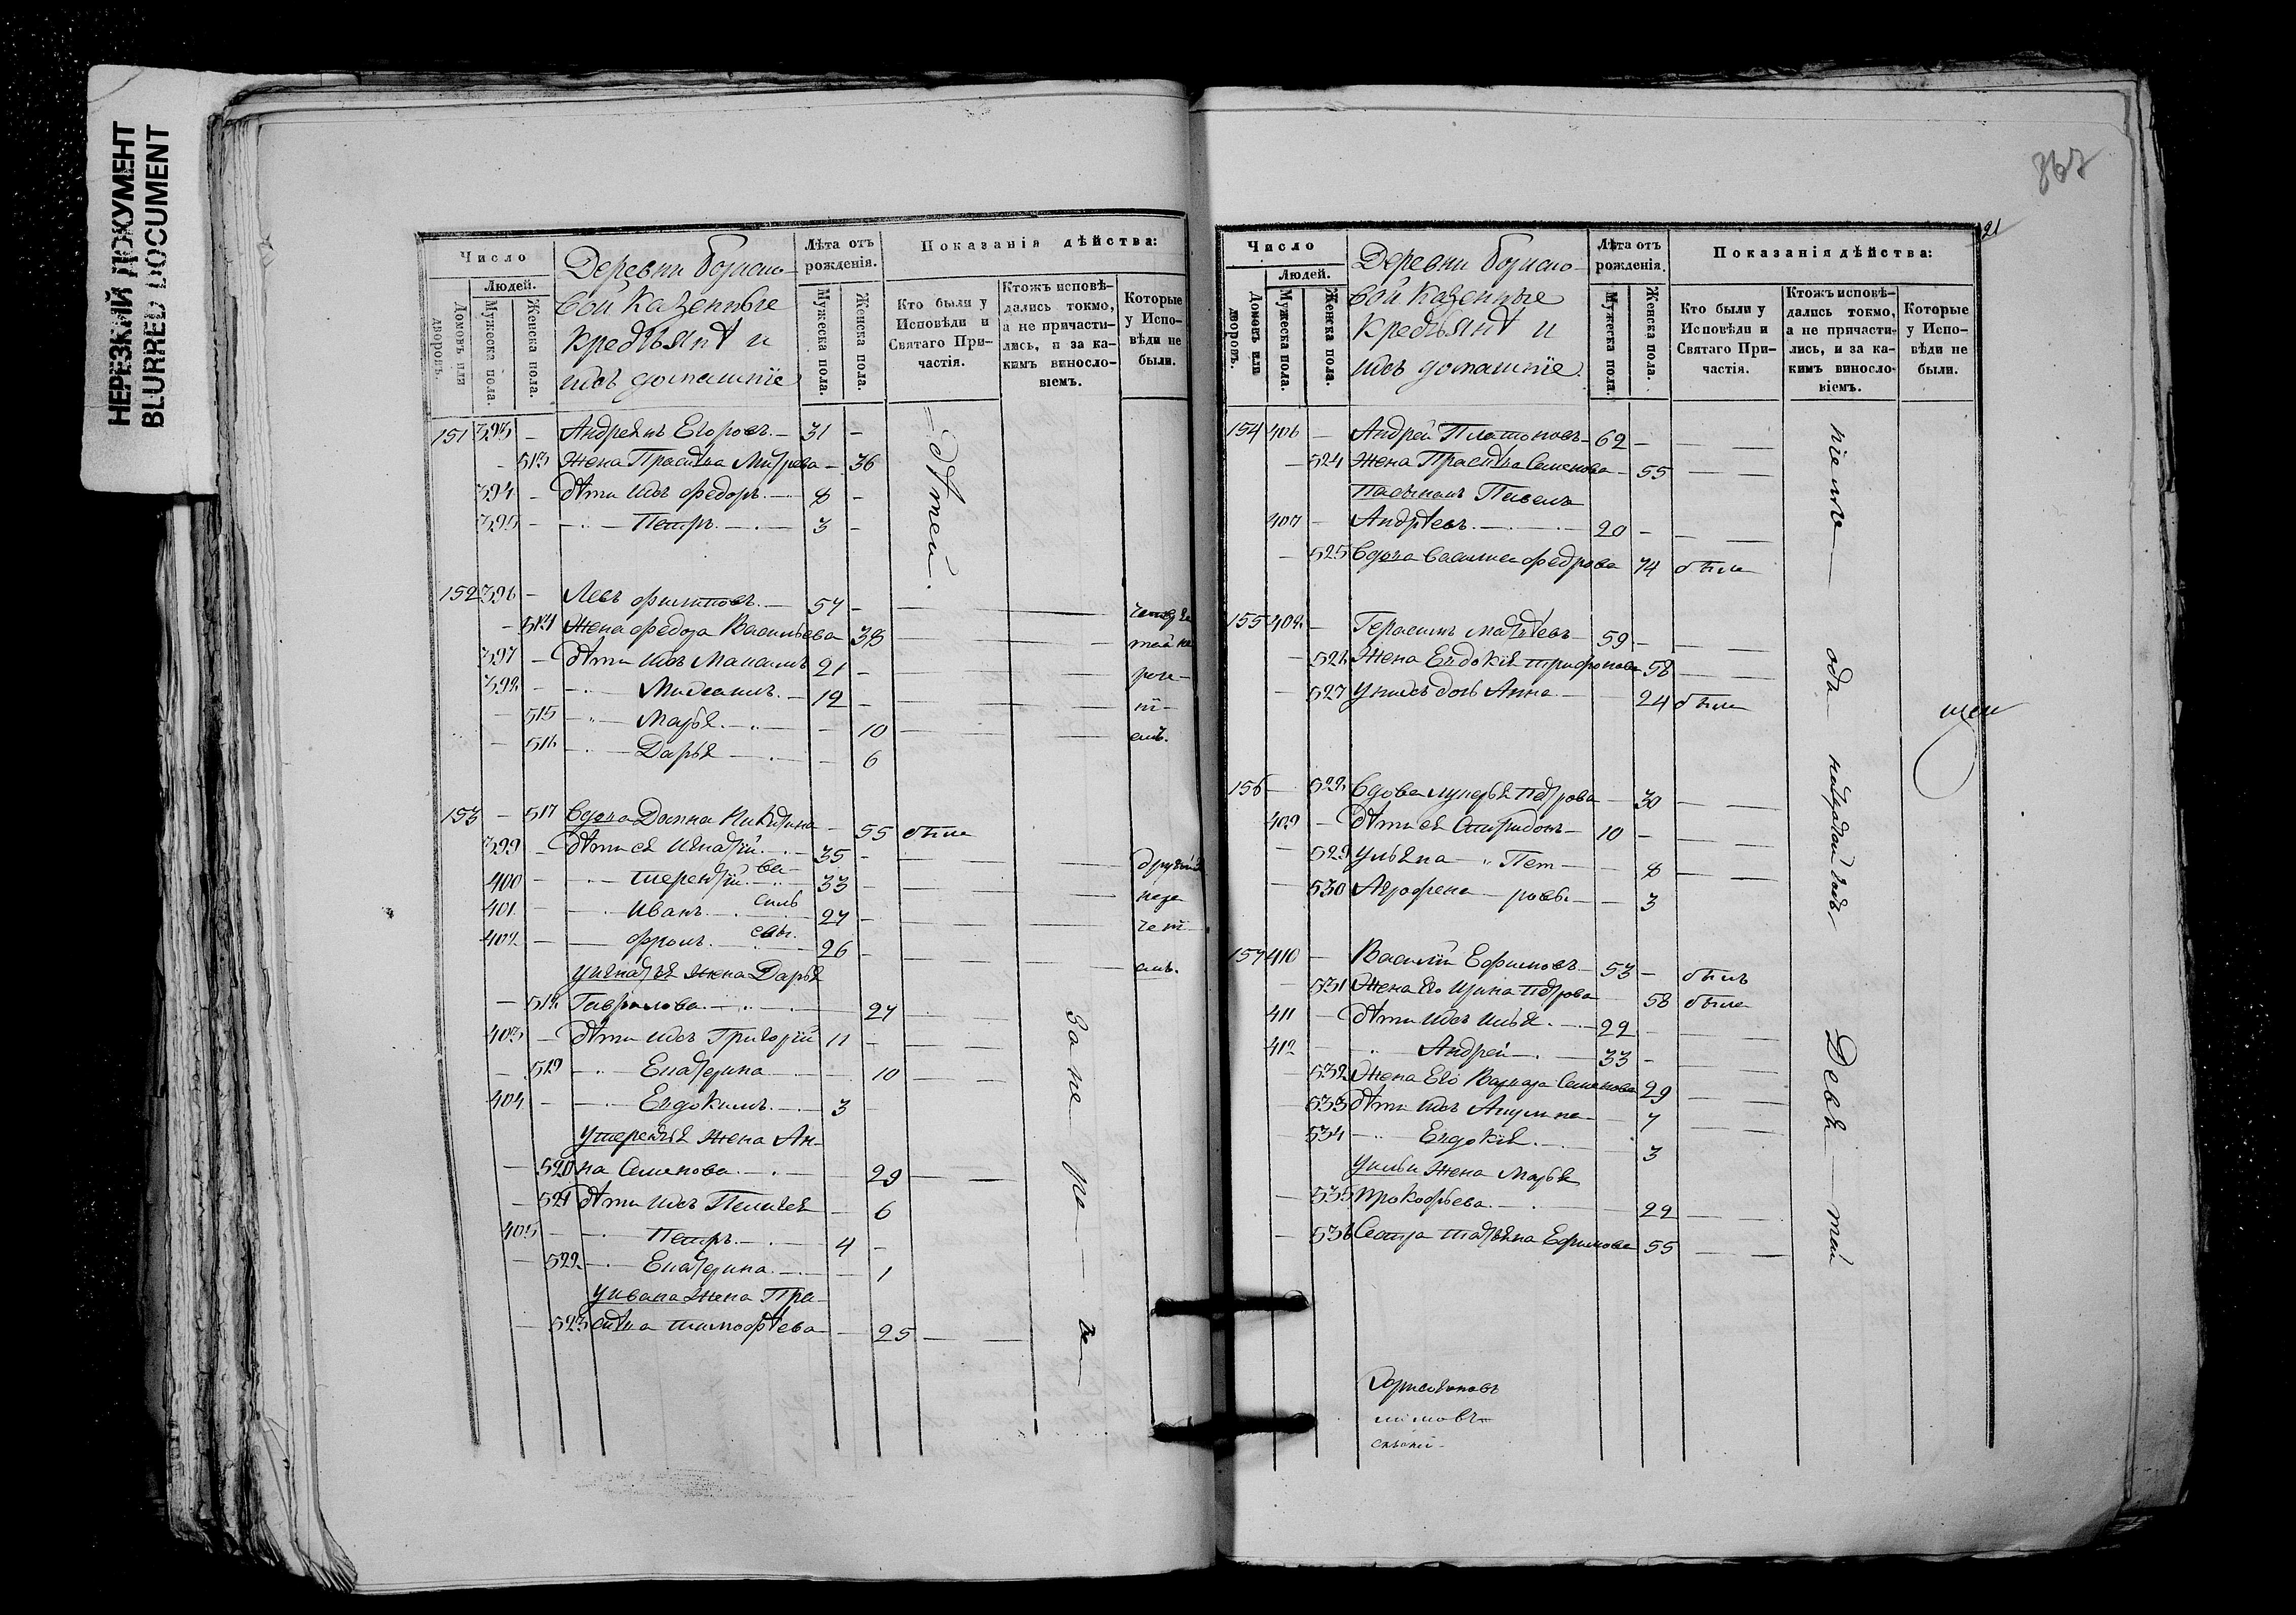 НЕРЕЗКИЙ ДОКУМЕНТ
BLURRED DOCUMENT
Число
Людей.
Домовъ или дворовъ.
Мужеска пола.
Женска пола.
Деревни
вой казенные
крестьянѣ и
ихъ домашніе
Лѣта отъ рожденія.
Мужеска пола.
Женска пола.
Показанія дѣйства:
Кто были у Исповѣди и Святаго Причастія.
Ктожъ исповѣдались токмо, а не причастились, и за какимъ винословіемъ.
Которые у Исповѣди не были.
151 393 — Андреянъ Егоровъ — 31 —
— 513 Жена Праскѣва — 36
394 — дѣти ихъ Федоръ — 8 —
395 — — Петръ — 3 —
152 396 — Левъ Филиповъ — 57 —
— 514 Жена Федора Васильева 38
397 — дѣти ихъ 21 —
398 — — 19 —
— 515 — Марья — — 10
— 516 — Дарья — — 6
153 — 517 Вдова Домна Никитина — 55 была
399 — дѣти ея Игнатій — 35 —
400 — — Терентій — 33 —
401 — — Иванъ — 27 —
402 — — Фролъ — 26 —
У Игнатья жена Дарья
— 518 Гаврилова — 27
403 — дѣти ихъ Григорій 11 —
— 519 — Екатерина — 10
404 — — Евдокимъ — 3 —
У Терентья жена Ан-
— 520 на Семенова — 29
— 521 дѣти ихъ Пелагея — 6
405 — — Петръ — 4 —
— 522 — Екатерина — — 1
У Ивана жена Пра-
— 523 скѣва Тимофѣева — 25
дѣтей.
за не ра —
367
21
Число
Людей.
Домовъ или дворовъ.
Мужеска пола.
Женска пола.
Деревни
вой казенные
крестьянѣ и
ихъ домашніе
Лѣта отъ рожденія.
Мужеска пола.
Женска пола.
Показанія дѣйства:
Кто были у Исповѣди и Святаго Причастія.
Ктожъ исповѣдались токмо, а не причастились, и за какимъ винословіемъ.
Которые у Исповѣди не были.
154 406 — Андрей Платоновъ — 62 —
— 524 Жена Праскѣва Семенова — 55
Пасынокъ Павелъ
407 — Андрѣевъ — 20 —
— 525 Вдова Василиса Федрова 74 была
155 408 — Герасимъ Матвѣевъ — 59 —
— Жена Евдокія Трифонова 58
— 527 У нихъ дочь Анна — 24 была
156 — 528 Вдова Лукерья Петрова — 30
409 — дѣти ея Спиридонъ — 10 —
— 529 Ульяна — Пет — 8
— 530 Агрофена — ровы — 3
157 410 — Василій Ефимовъ — 53 — былъ
— 531 Жена его Ирина Петрова 58 была
411 — дѣти ихъ Илья — 22 —
412 — Андрей — 33 —
— 532 Жена его Варвара Семенова 29
533 дѣти ихъ Акулина — 7
534 — Евдокія — 3
У Ильи жена Марья
— 535 Прокофьева — 22
— 536 Сестра Татьяна Ефимова 55